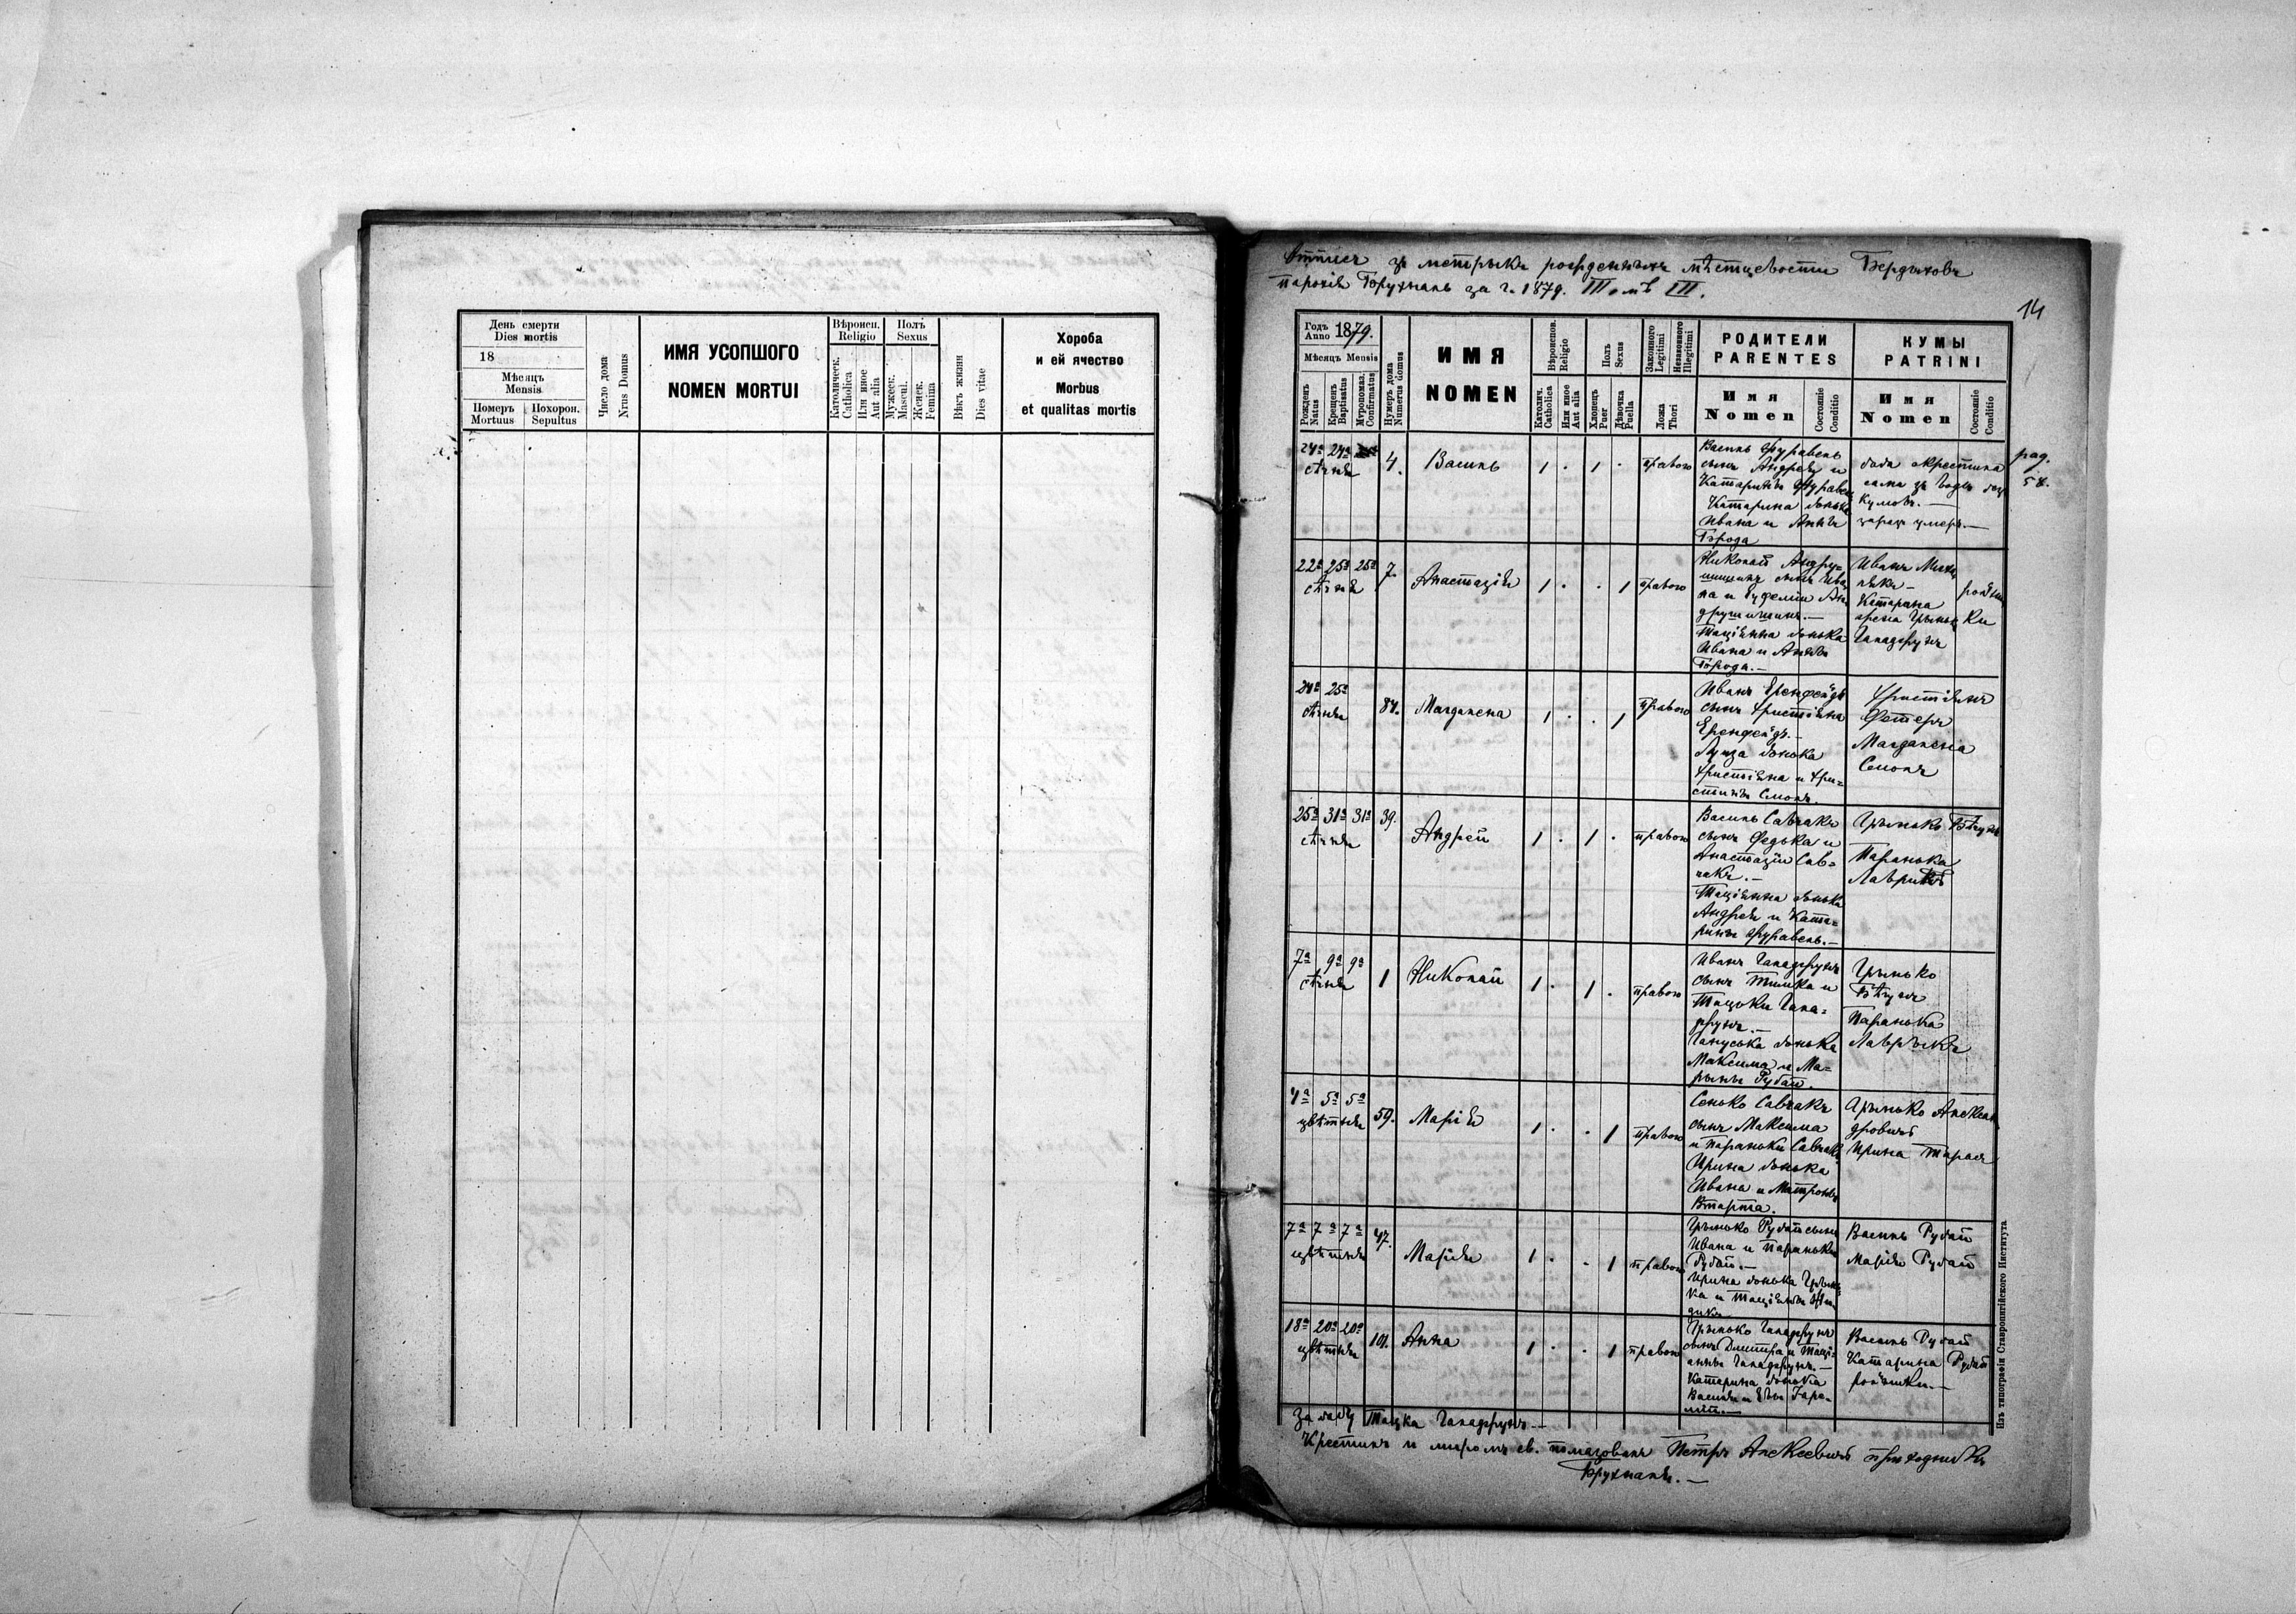 День смерти
Dies mortis
18
Мѣсяцъ
Mensis
Номеръ
Mortuus
Похорон.
Sepultus
Число дома
Nrus Domus
ИМЯ УСОПШОГО
NOMEN MORTUI
Вѣроисп.
Religio
Католическ.
Catholica
Или иное
Aut alia
Полъ
Sexus
Мужеск.
Mascul.
Женск.
Femina
Вѣкъ жизни
Dies vitae
Хороба
и ей ячество
Morbus
et qualitas mortis
за метрыкъ рожденныхъ мѣстцевости Бердыховъ
парохія Брухналь за г. 1879. III омъ III.
14
Годъ
Anno 1879.
Мѣсяцъ Mensis
Рожденъ
Natus
Крещенъ
Baptisatus
Мѵропомаз.
Confirmatus
Нумеръ дома
Numerus domus
ИМЯ
NOMEN
Вѣроиспов.
Religio
Католич.
Catholica
Или иное
Aut alia
Полъ
Sexus
Хлопецъ
Puer
Дѣвочка
Puella
Законного
Legitimi
Незаконного
Illegitimi
Ложа
Thori
РОДИТЕЛИ
PARENTES
Имя
Nomen
Состояніе
Conditio
КУМЫ
PATRINI
Имя
Nomen
Состояніе
Conditio
24а 24а
сѣчня
4.
Василь
1 . 1 .
правого
Василь Журавель
сынъ Андрея и
Катарины Журавель
Катарина донька
Ивана и Анны
Города
баба окрестила
сама за воды без
кумовъ.—
зараз умеръ.—
pag.
58.
22а 25а 25а
сѣчня
7.
Анастазія
1 . . 1
правого
Николай Андру-
шишинъ сынъ Ива
на и Еуфеміи Ан
друшишинъ.—
Таціянна донька
Ивана и Анны
Города.—
Иванъ
Катарина
жена Грынька
Галаджунъ
24а 25а
сѣчня
84.
Магдалена
1 . . 1
правого
Иванъ Еренфейдъ
сынъ Христіяна
Еренфейдъ.—
Луиза донька
Христіяна и Хри-
стины Смокъ.
Христіянъ
Фетеръ
Магдалена
Смокъ
25а 31а 31а
сѣчня
39.
Андрей
1 . 1 .
правого
Василь Савчакъ
сынъ Федька и
Анастазіи Сав-
чакъ.—
Таціянна донька
Андрея и Ката-
рины Журавель.—
Грынько Бѣгунъ
Паранька
Лаврикъ
7а 9а 9а
сѣчня
1
Николай
1 . 1 .
правого
Иванъ Галаджунъ
сынъ Тимка и
Тацьки Гала-
джунъ.—
Гануська донька
Максима и Ма-
рыны Рубай.
Грынько
Бѣгунъ
Паранька
Лаврыкъ
4а 5а 5а
цвѣтня
59.
Марія
1 . . 1
правого
Сенько Савчакъ
сынъ Максима
и Параньки Савчакъ
Ирина донька
Ивана и Матроны
Грынько Алексан
дровичъ
Ирина Тарасъ
7а 7а 7а
цвѣтня
47.
Марія
1 . . 1
правого
Грынько Рубай сынъ
Ивана и Параньки
Рубай.—
Ирина донька Грынь
ка и Таціянны
Василь Рубай
Марія Рубай
18а 20а 20а
цвѣтня
101.
Анна
1 . . 1
правого
Грынько Галаджунъ
сынъ Дмитра и Таці-
анны Галаджунъ.—
Катарина донька
Василя и Евы
Василь Рубай
Катарина Рубай
рольники.—
За бабу Тацка Галаджунъ.—
Крестилъ и миромъ св. помазовалъ Петръ Алексевичъ приходникъ
Брухналя.—
Изъ типографіи Ставропигійского Института